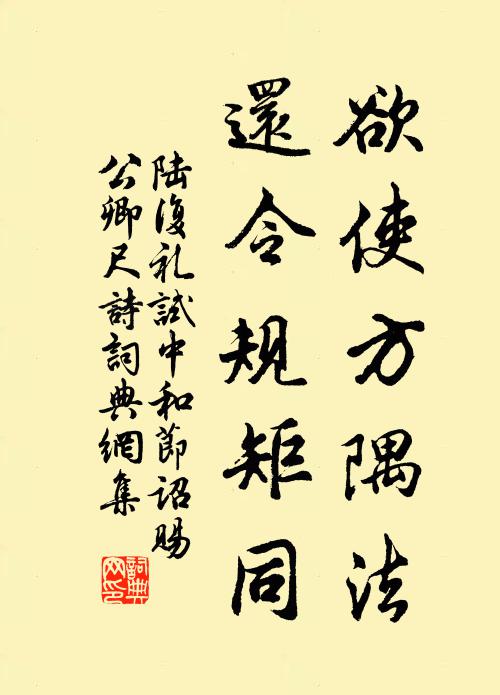 欲使方隅法
還令規矩同
陸復礼試中和節詔賜
公卿尺詩詞典網集
詞典
网印